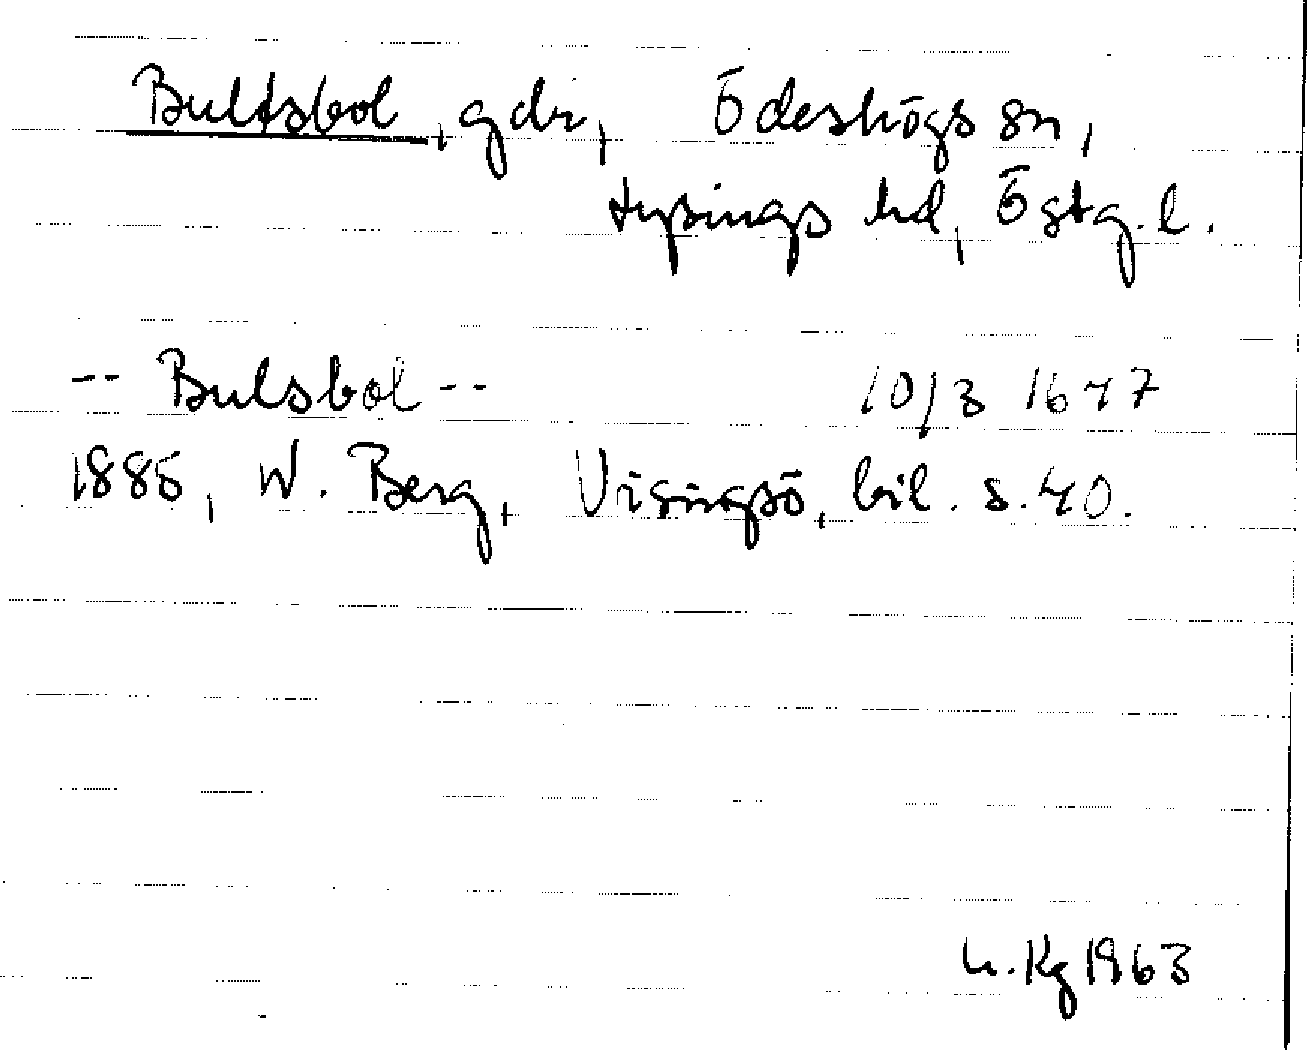 Bultsbol, gdr, Ödeshögs sn,
Lysings hd, Östg.l.
-- Bulsbol -- 10/3 1647
1885, W. Berg, Visingsö, bil. s. 40.
h.Kg 1963